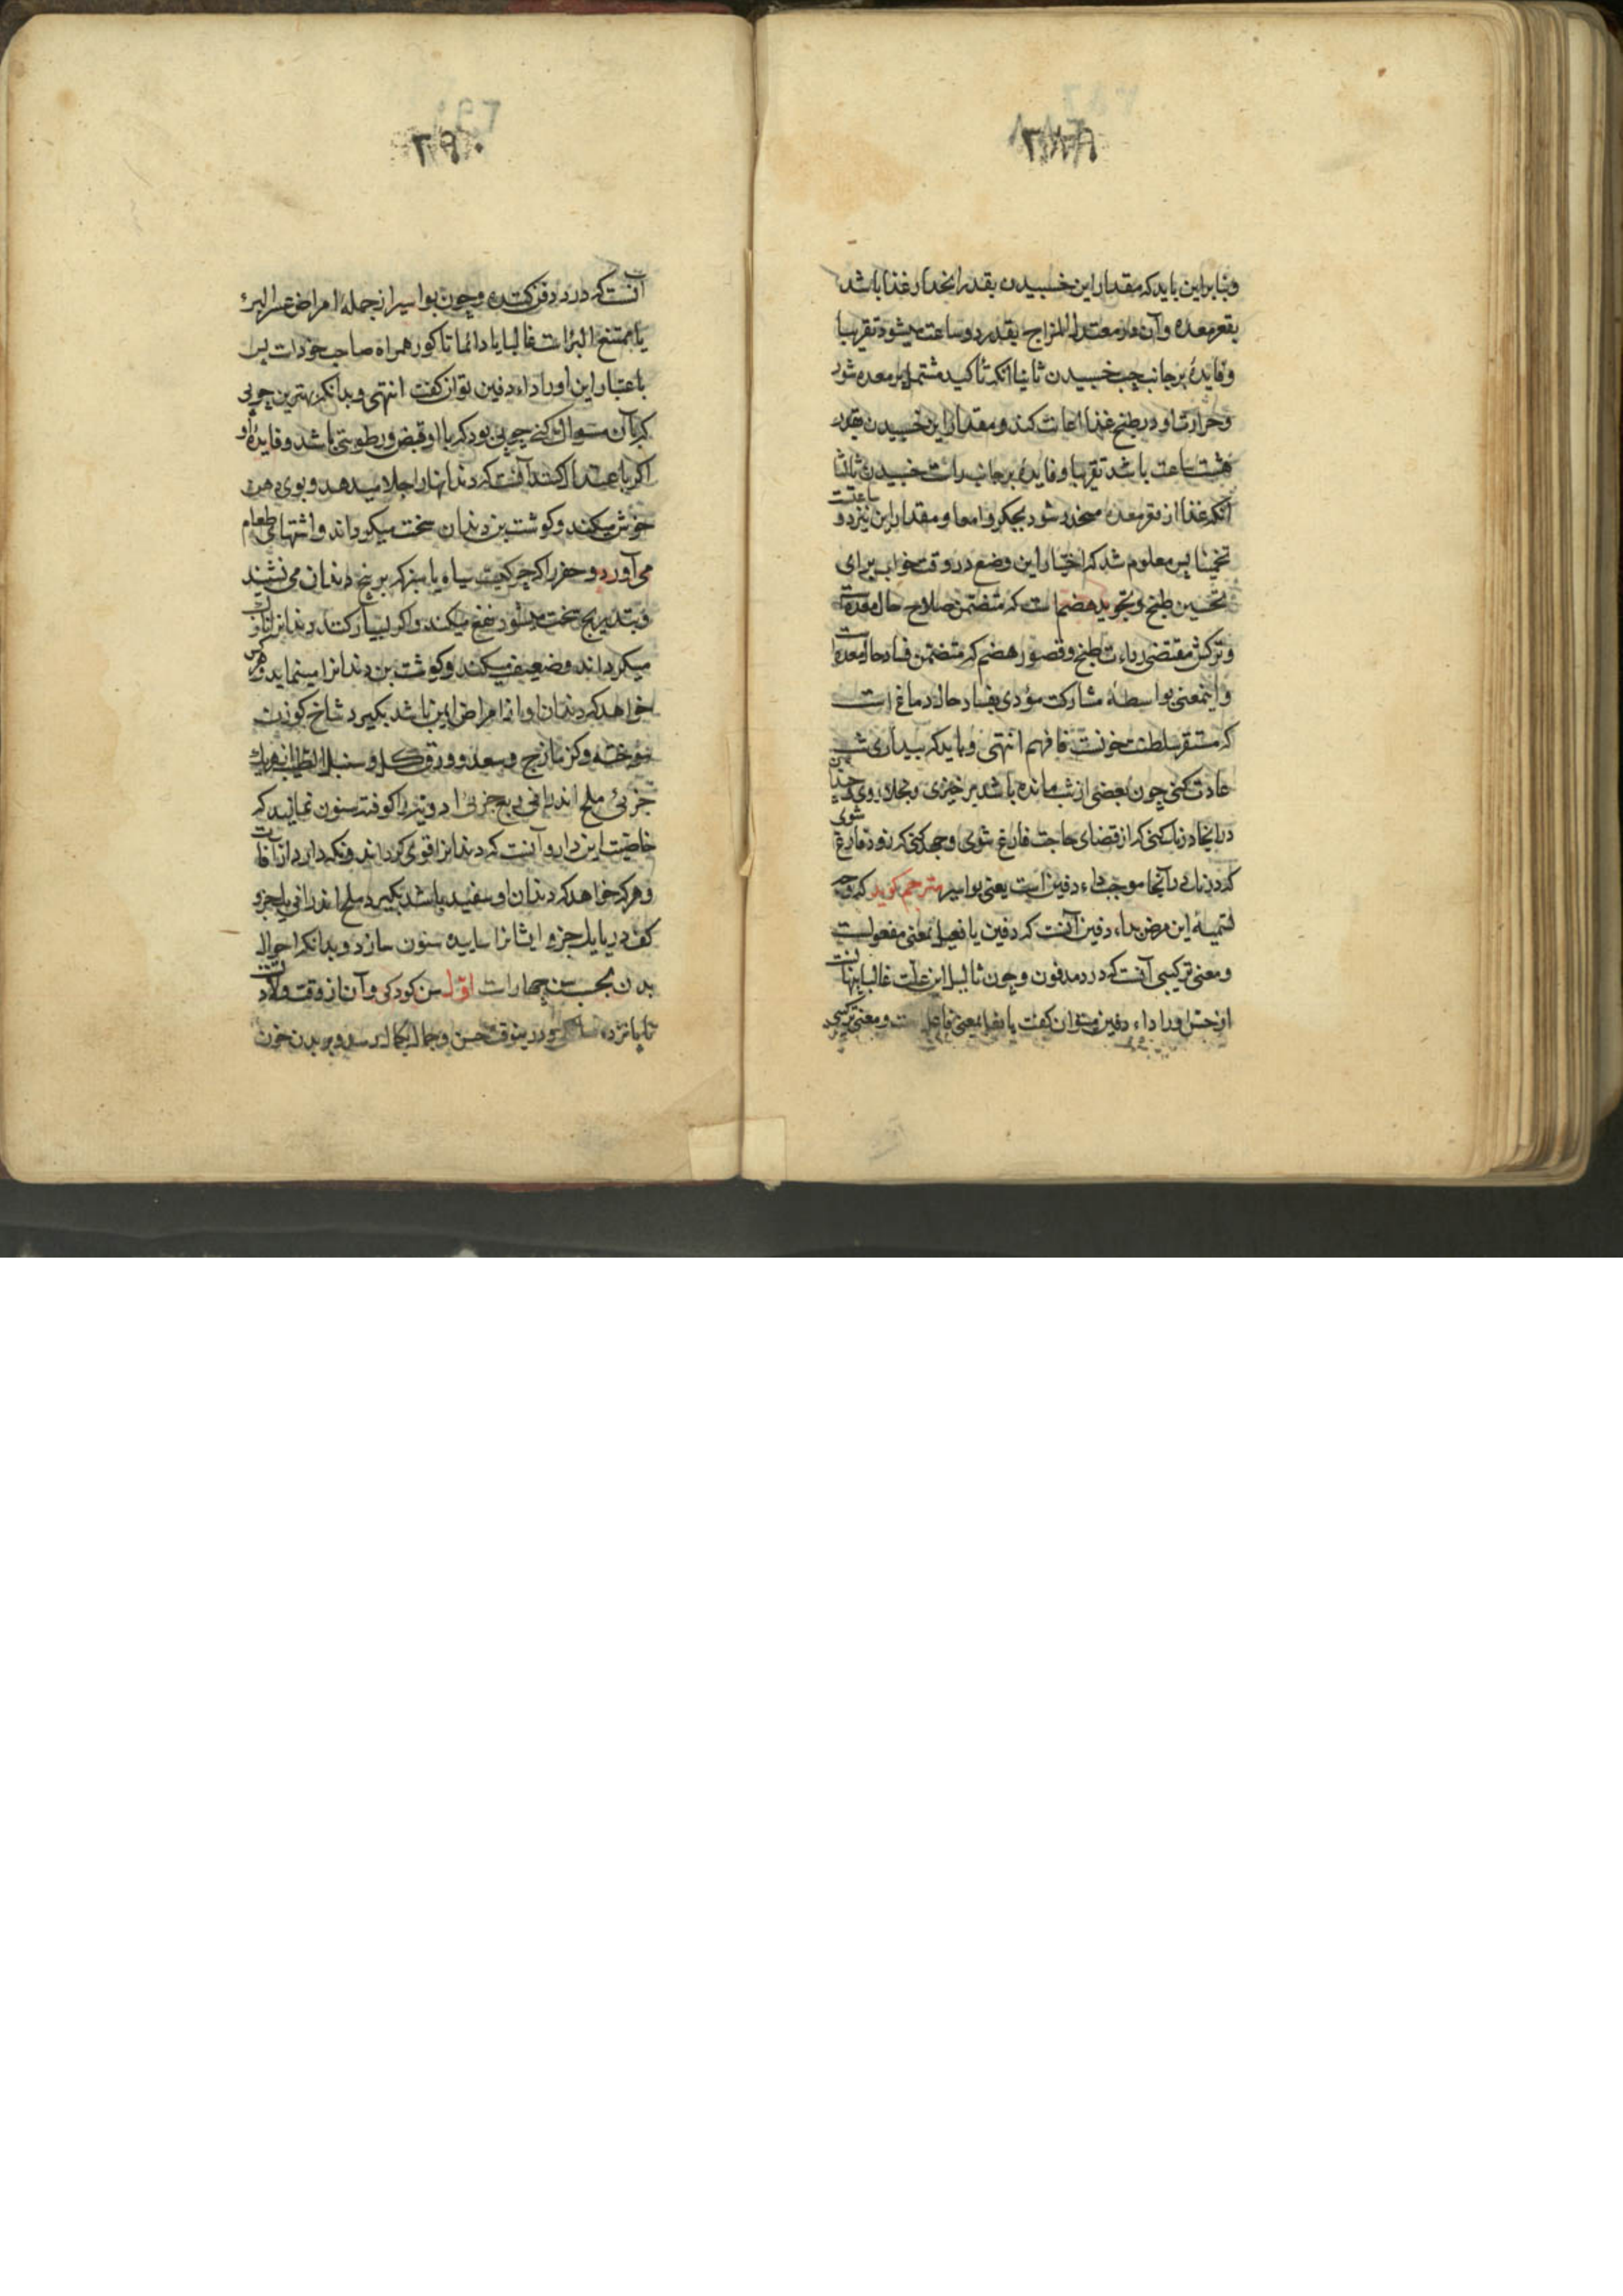 وبنابراین باید که مقدار این خسبیدن بقدر انحدار غذا باشد
بقعر معده وآن در معتدل المزاج بقدر دو ساعت میشود تقریبا
وفایدهٔ بر جانب چپ خسبیدن ثانیا آنکه تا کبد مشتمل بر معده شود
وحرارت او در طبخ غذا اعانت کند ومقدار این خسبیدن بقدر
هشت ساعت باشد تقریبا وفایدهٔ بر جانب راست خسبیدن ثالثا
آنکه غذا از قعر معده منحدر شود بجگر وامعا ومقدار این نیز دو ساعتست
تخمینا پس معلوم شد که اختیار این وضع در وقت خواب برای
تحسین طبخ وتجوید هضم است که متضمن صلاح حال معده است
وترکش مقتضی رداءت طبخ وقصور هضم که متضمن فساد حال معده است
واینمعنی بواسطهٔ مشارکت مؤدی بفساد حال دماغ است
که مستقر سلطنت خونست فافهم انتهی وباید که بیداری شب
عادت کنی چون بعضی از شب مانده باشد برخیزی وبخلا روی چندان
در اینجا درنک کنی که از قضای حاجت فارغ شوی وجهد کنی که زود فارغ شوی
که درنک در آنجا موجب داء دفین است یعنی بواسیر مترجم کوید که وجه
تسمیهٔ این مرض بداء دفین آنست که دفین یا فعیل بمعنی مفعولست
ومعنی ترکیبی آنست که درد مدفون وچون ثالیل این علت غالبا پنهانست
از حس اورا داء دفین میتوان کفت یا فعیل بمعنی فاعل است ومعنی ترکیبی
آنست که درد دفن کننده وچون بواسیر از جملهٔ امراض عسرالبرء
یا ممتنع البرء است غالبا یا دائما تا کور همراه صاحب خود است پس
باعتبار این اورا داء دفین توان کفت انتهی وبدانکه بهترین چوبی
که بآن مسواک کنی چوبی بود که با او قبض ورطوبتی باشد وفایدهٔ او
اکر باعتدال کنند آنست که دندانها را جلا میدهد وبوی دهن
خوش میکند وکوشت بن دندان سخت میکرداند واشتهای طعام
می آورد وحفر را که چرکیست سیاه یا سبز که بر بیخ دندان می نشیند
وبتدریج سخت میشود دفع میکند واکر بسیار کنند دندانرا نازک
میکرداند وضعیف میکند وکوشت بن دندانرا مینماید وهرکس
خواهد که دندان او از امراض ایمن باشد بکیرد شاخ کوزن
سوخته وکزمازج وسعد وورق کل وسنبل الطیب از هر یک
جزئی ملح اندرانی ربع جزئی ادویه را کوفته سنون نمایند که
خاصیت این دارو آنست که دندانرا قوی کرداند ونکه دارد از آفات
وهرکه خواهد که دندان او سفید باشد بکیرد ملح اندرانی یک جزو
کف دریا یک جزو ایشانرا ساییده سنون سازد وبدانکه احوال
بدن بحسب سن چهار است اوّل سن کودکی وآن از وقت ولادتست
تا پانزده سالکی ودرینوقت حسن وجمال بکمال رسد وبر بدن خون